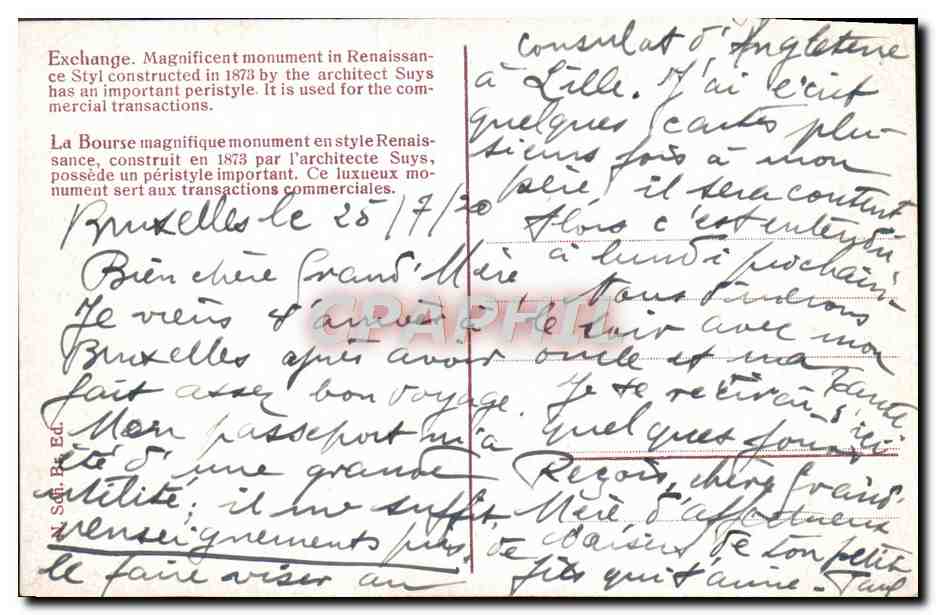 Exchange. Magnificent monument in Renaissan-
ce Styl constructed in 1873 by the architect Suys
has an important peristyle. It is used for the com-
mercial transactions.
La Bourse magnifique monument en style Renais-
sance, construit en 1873 par l'architecte Suys,
possède un péristyle important. Ce luxueux mo-
nument sert aux transactions commerciales.
N. Sch. Br. Ed.
Bruxelles le 25/7/20
Bien chère Grand'Mère
Je viens d'arriver à
Bruxelles après avoir
fait assez bon voyage.
Mon passeport m'a
été d'une grande
utilité; il me suffit,
renseignements pris, de
le faire viser au
consulat d'Angleterre
à Lille. J'ai écrit
quelques cartes plu-
sieurs fois à mon
père, il sera content
Alors c'est entendu
à lundi prochain.
Nous dinerons
le soir avec mon
oncle et ma Tante
Je te récrirai d'ici
quelques jours
Reçois, chère Grand'
Mère, d'affectueux
baisers de ton petit
fils qui t'aime - Paul
CPAPHIL